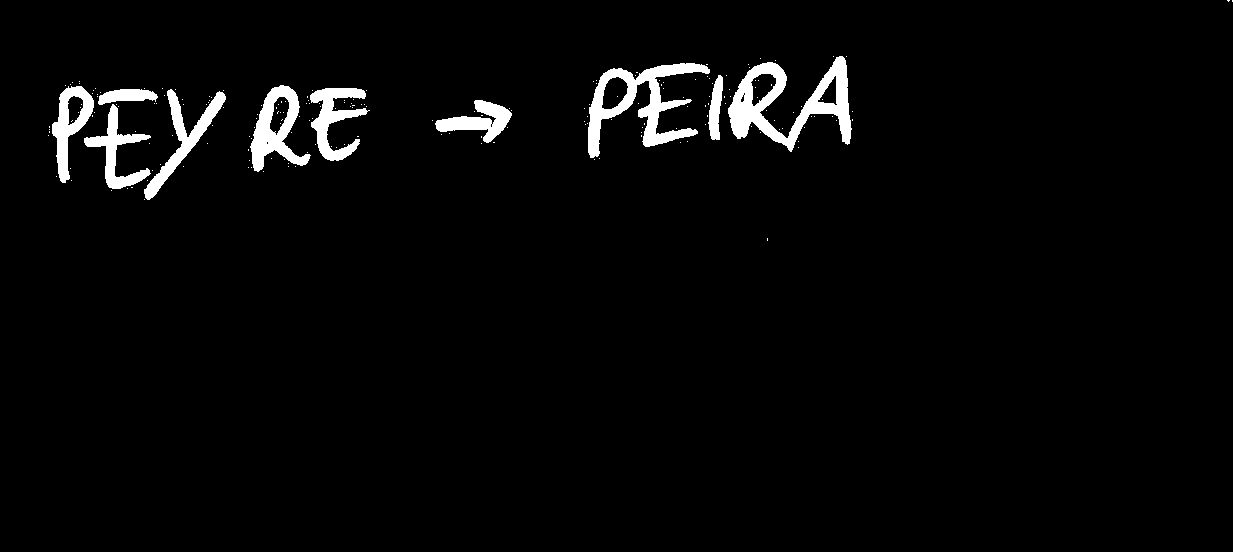 PEYRE → PEIRA